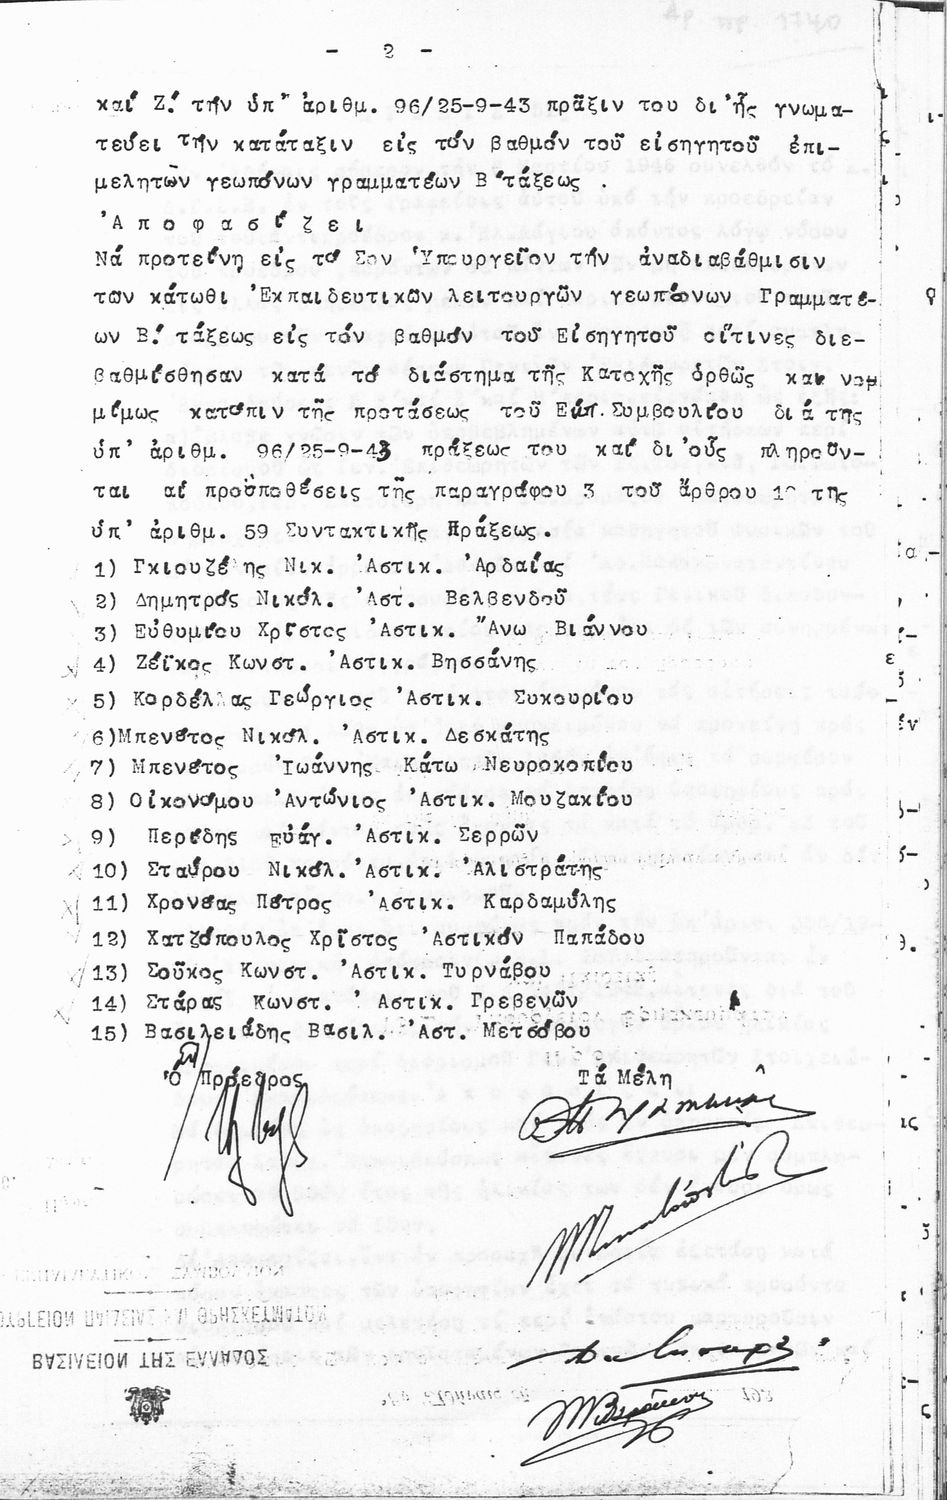 Αρ πρ. 1740
- 2 -
καί Ζ! τήν ὑπ' ἀριθμ. 96/25-9-43 πρᾶξιν του δι'ἧς γνωμα-
τεύει τήν κατάταξιν εἰς τόν βαθμόν τοῦ εἰσηγητοῦ ἐπι-
μελητῶν γεωπόνων γραμματέων Β'τάξεως .
'Α π ο φ α σ ί ζ ε ι
Νά προτείνη εἰς τό Σον Ὑπουργεῖον τήν ἀναδιαβάθμισιν
τῶν κάτωθι Ἐκπαιδευτικῶν λειτουργῶν γεωπόνων Γραμματέ-
ων Β! τάξεως εἰς τόν βαθμόν τοῦ Εἰσηγητοῦ οἵτινες διε-
βαθμίσθησαν κατά τό διάστημα τῆς Κατοχῆς ὀρθῶς και νομ
μίμως κατόπιν τῆς προτάσεως τοῦ Εκπ.Συμβουλίου διά της
ὑπ' ἀριθμ. 96/25-9-43 πράξεως του καί δι'οὕς πληροῦν-
ται αἱ προϋποθέσεις τῆς παραγράφου 3 τοῦ ἄρθρου 1ο της
ὑπ' ἀριθμ. 59 Συντακτικῆς Πράξεως.
1) Γκιουζέλης Νικ. 'Αστικ. 'Αρδαίας
2) Δημητρός Νικόλ. 'Αστ. Βελβενδοῦ
3) Εὐθυμίου Χρῖστος 'Αστικ. Ἄνω Βιάννου
4) Ζέϊκος Κωνστ. 'Αστικ. Βησσάνης
5) Κορδέλλας Γεώργιος 'Αστικ. Συκουρίου
6)Μπενέτος Νικόλ. 'Αστικ. Δεσκάτης
7) Μπενέτος Ἰωάννης Κάτω Νευροκοπίου
8) Οἰκονόμου 'Αντώνιος 'Αστικ. Μουζακίου
9) Περέδης Εὐάγ. 'Αστικ Σερρῶν
10) Σταύρου Νικόλ.'Αστικ. 'Αλιστράτης
11) Χρονέας Πέτρος 'Αστικ. Καρδαμύλης
12) Χατζόπουλος Χρῖστος 'Αστικόν Παπάδου
13) Σοῦκος Κωνστ. 'Αστικ. Τυρνάβου
14) Στάρας Κωνστ. 'Αστικ. Γρεβενῶν
15) Βασιλειάδης Βασιλ. 'Αστ. Μετσόβου
Ὁ Πρόεδρος Τά Μέλη
ΒΑΣΙΛΕΙΟΝ ΤΗΣ ΕΛΛΑΔΟΣ